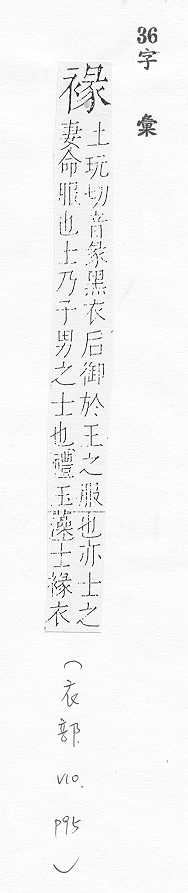 36字 彙
褖
土玩切音彖黑衣后御於王之服也亦士之
妻命服也士乃子男之士也禮玉藻士褖衣
(衣部. V10. P95)